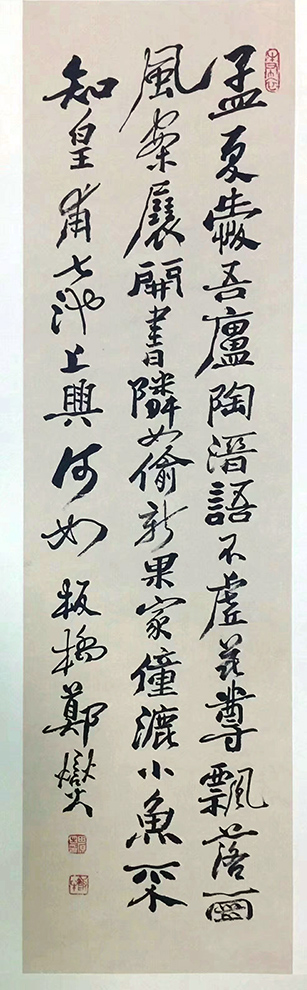 孟夏愛吾廬陶潛語不虛花尊飄落酉
風案展開書隣女偷新果家僮漉小魚不
知皇甫七池上興何如 板橋鄭燮